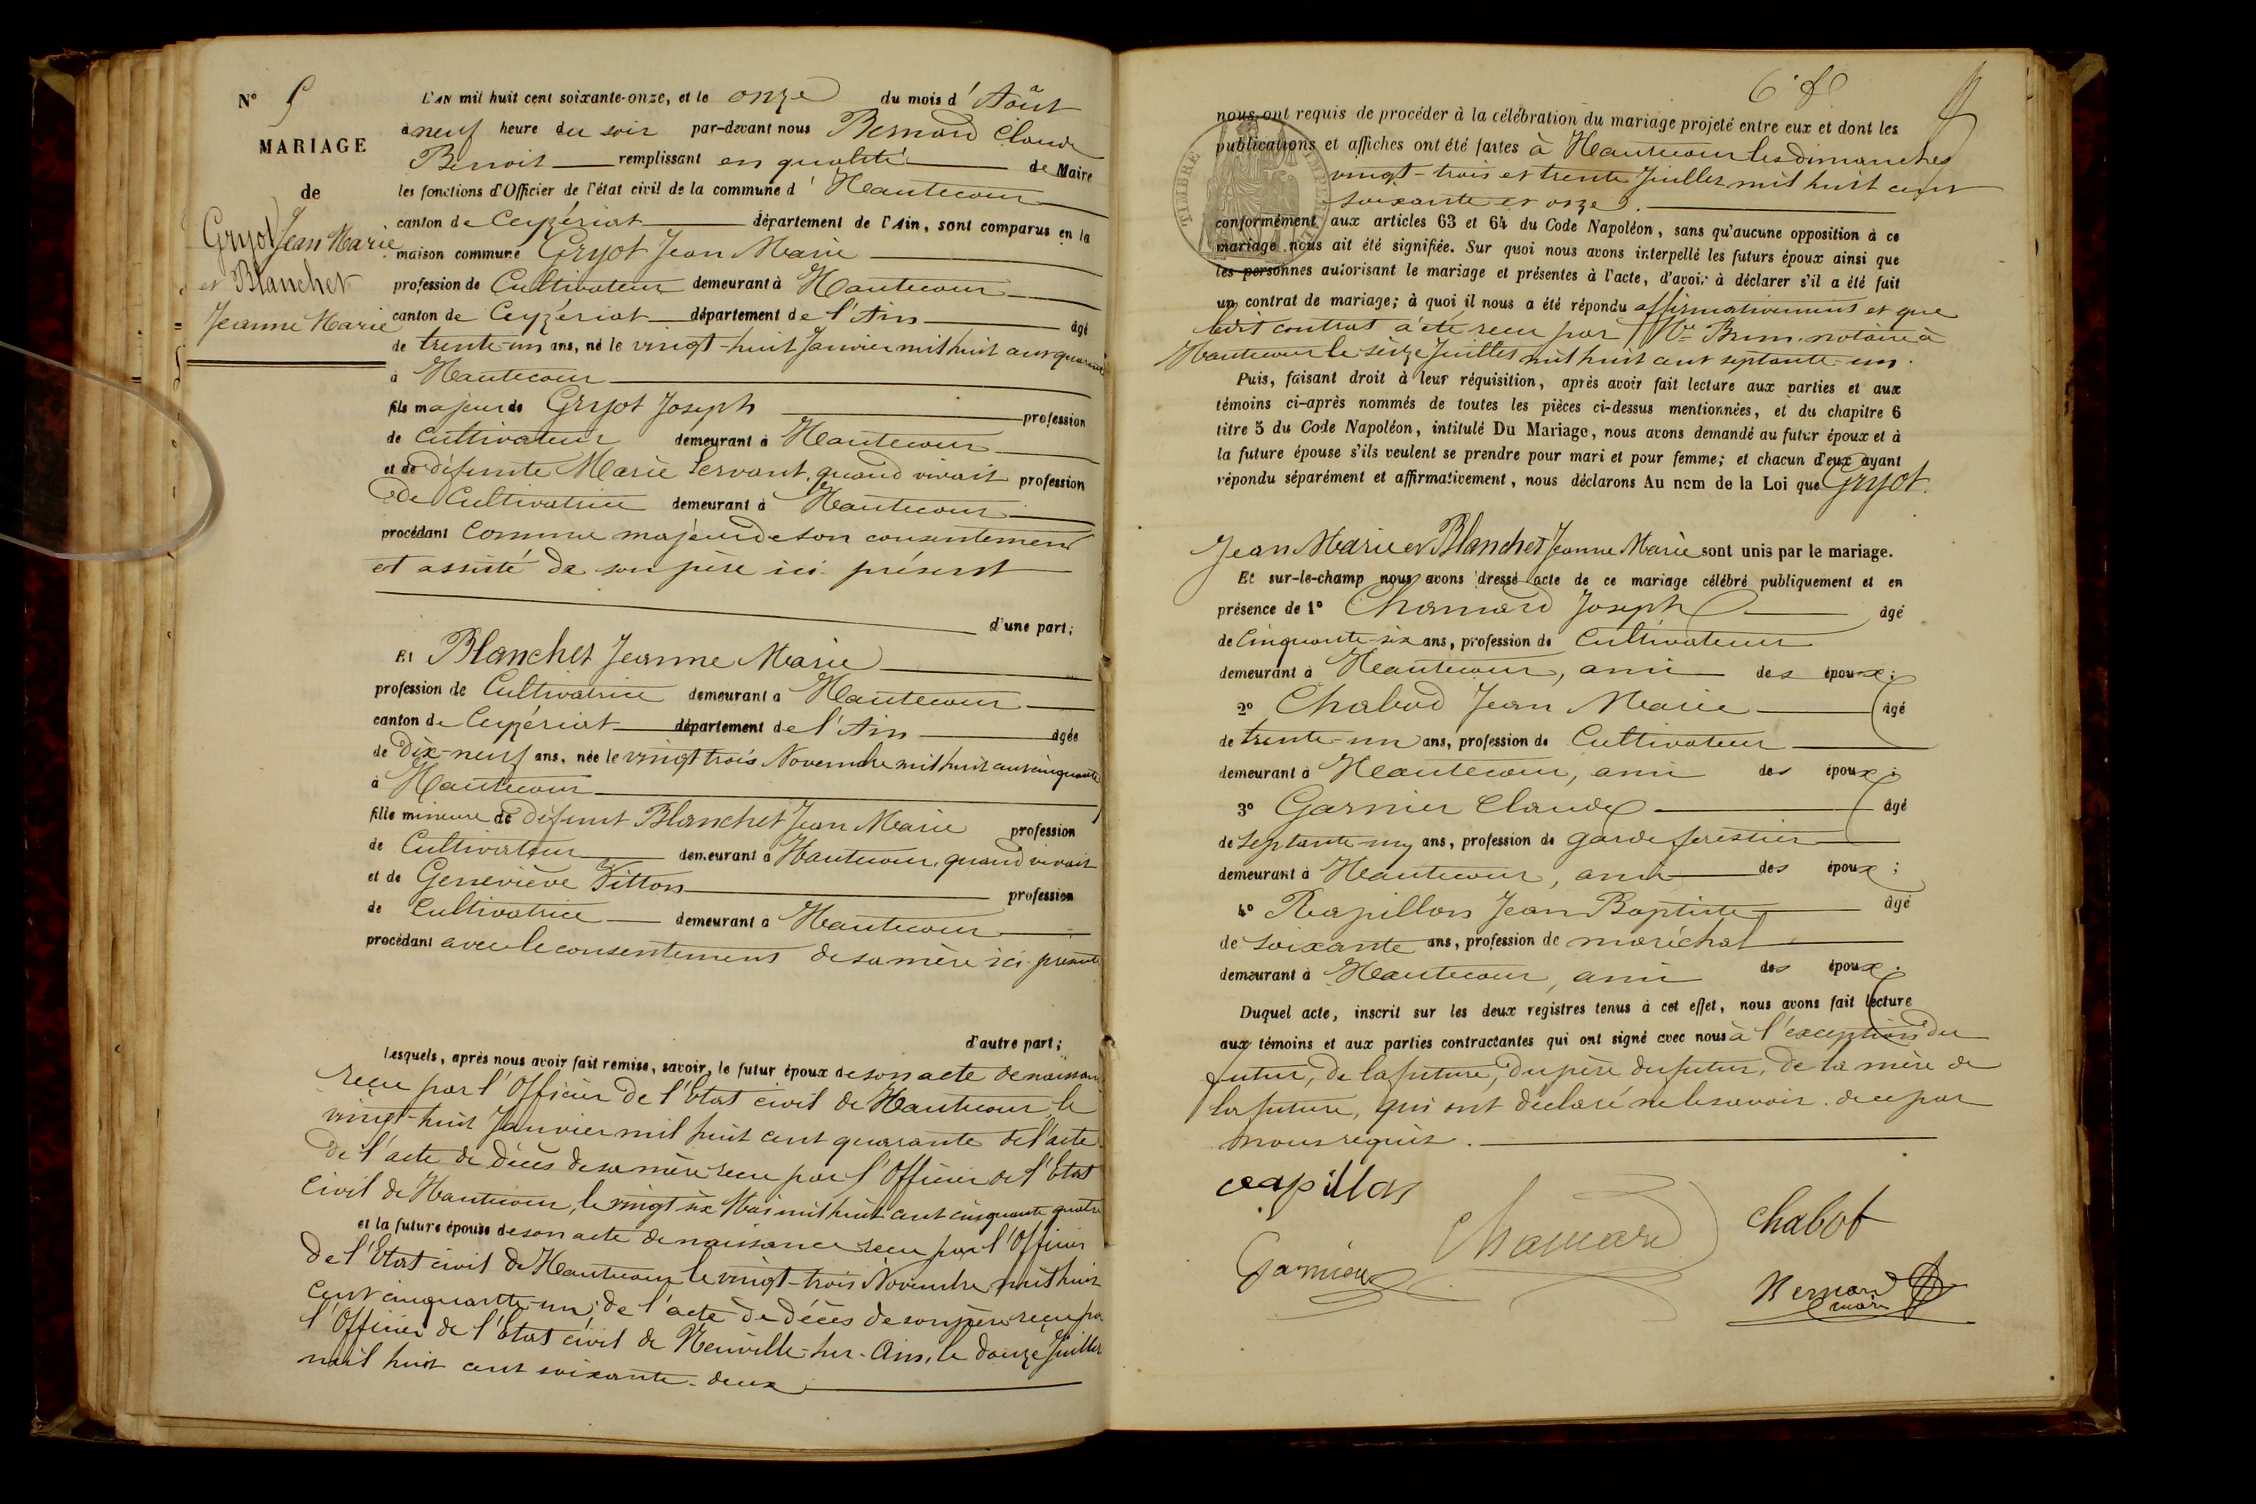 N° 5
MARIAGE
de
Gryot Jean Marie
et Blanchet
Jeanne Marie
L'AN mil huit cent soixante-onze, et le onze du mois d'Août
à neuf heure du soir par-devant nous Bernard Claude
Benoit remplissant en qualité de Maire
les fonctions d'Officier de l'état civil de la commune d'Hautecour
canton de Ceyzériat département de l'Ain, sont comparus en la
maison commune Gryot Jean Marie
profession de Cultivateur demeurant à Hautecour
canton de Ceyzériat département de l'Ain âgé
de trente-un ans, né le vingt-huit Janvier mil huit cent quarante
à Hautecour
fils majeur de Gryot Joseph profession
de Cultivateur demeurant à Hautecour
et de défunte Marie Servant, quand vivait profession
de Cultivatrice demeurant à Hautecour
procédant comme majeur de son consentement
et assisté de son père ici présent
d'une part;
Et Blanchet Jeanne Marie
profession de Cultivatrice demeurant à Hautecour
canton de Ceyzériat département de l'Ain âgée
de Dix-neuf ans, née le vingt trois Novembre mil huit cent cinquante
à Hautecour
fille mineure de Défunt Blanchet Jean Marie profession
de Cultivateur demeurant à Hautecour, quand vivait
et de Geneviève Vitton profession
de Cultivatrice demeurant à Hautecour
procédant avec le consentement de sa mère ici présente
d'autre part;
Lesquels, après nous avoir fait remise, savoir, le futur époux de son acte de naissance
reçu par l'Officier de l'Etat civil de Hautecour le
vingt-huit Janvier mil huit cent quarante de l'acte
de l'acte de décès de sa mère reçu par l'Officier de l'Etat
civil de Hautecour, le vingt six Mai mil huit cent cinquante quatre
et la future épouse de son acte de naissance reçu par l'Officier
de l'Etat civil de Hautecour le vingt-trois Novembre mil huit
cent cinquante-un; de l'acte de décès de son père reçu par
l'Officier de l'Etat civil de Neuville-sur-Ain, le douze Juillet
mil huit cent soixante-deux
6
nous ont requis de procéder à la célébration du mariage projeté entre eux et dont les
publications et affiches ont été faites à Hautecour les dimanches
vingt-trois et trente Juillet mil huit cent
soixante et onze.
TIMBRE
conformément aux articles 63 et 64 du Code Napoléon, sans qu'aucune opposition à ce
mariage nous ait été signifiée. Sur quoi nous avons interpellé les futurs époux ainsi que
les personnes autorisant le mariage et présentes à l'acte, d'avoir à déclarer s'il a été fait
un contrat de mariage; à quoi il nous a été répondu affirmativement et que
ledit contrat a été reçu par Me Brun notaire à
Hautecour le seize Juillet mil huit cent septante-un.
Puis, faisant droit à leur réquisition, après avoir fait lecture aux parties et aux
témoins ci-après nommés de toutes les pièces ci-dessus mentionnées, et du chapitre 6
titre 5 du Code Napoléon, intitulé Du Mariage, nous avons demandé au futur époux et à
la future épouse s'ils veulent se prendre pour mari et pour femme; et chacun d'eux ayant
répondu séparément et affirmativement, nous déclarons Au nom de la Loi que Gryot
Jean Marie et Blanchet Jeanne Marie sont unis par le mariage.
Et sur-le-champ nous avons dressé acte de ce mariage célébré publiquement et en
présence de 1° Chamard Joseph âgé
de Cinquante-six ans, profession de Cultivateur
demeurant à Hautecour, ami des époux;
2° Chabod Jean Marie âgé
de trente-un ans, profession de Cultivateur
demeurant à Hautecour, ami des époux;
3° Garnier Claude âgé
de septante-un ans, profession de garde forestier
demeurant à Hautecour, ami des époux;
4° Rapillon Jean Baptiste âgé
de soixante ans, profession de maréchal
demeurant à Hautecour, ami des époux.
Duquel acte, inscrit sur les deux registres tenus à cet effet, nous avons fait lecture
aux témoins et aux parties contractantes qui ont signé avec nous à l'exception du
futur, de la future, du père du futur, de la mère de
la future, qui ont déclaré ne le savoir de ce par
nous requis.
rapillon
Chamard
Chabot
Garnier
Bernard
maire